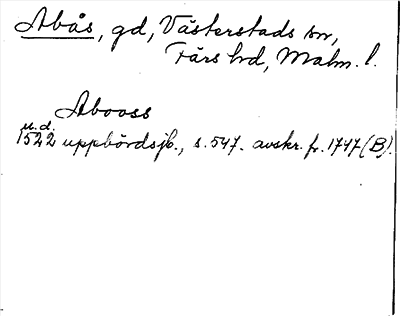 Abås, gd, Västerstads sn,
Färs hd, Malm. l.
Abooss
u.d.
1522 uppbördsjb., s. 547. avskr. fr. 1747 (B).